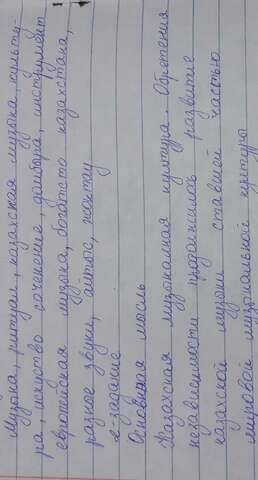 Музыка, ритуал, казахская музыка, культу-
ра, искуство сочинение, домбра, инструмент
европейская музыка, богатсто казахстана,
разное звуки, айтыс, жоктау
2-задание
Основная мысль
Казахская музыкалная култура. Обретения
независимости продолжилось развитие
казахской музыки ставшей частью
мировой музыкальной културы